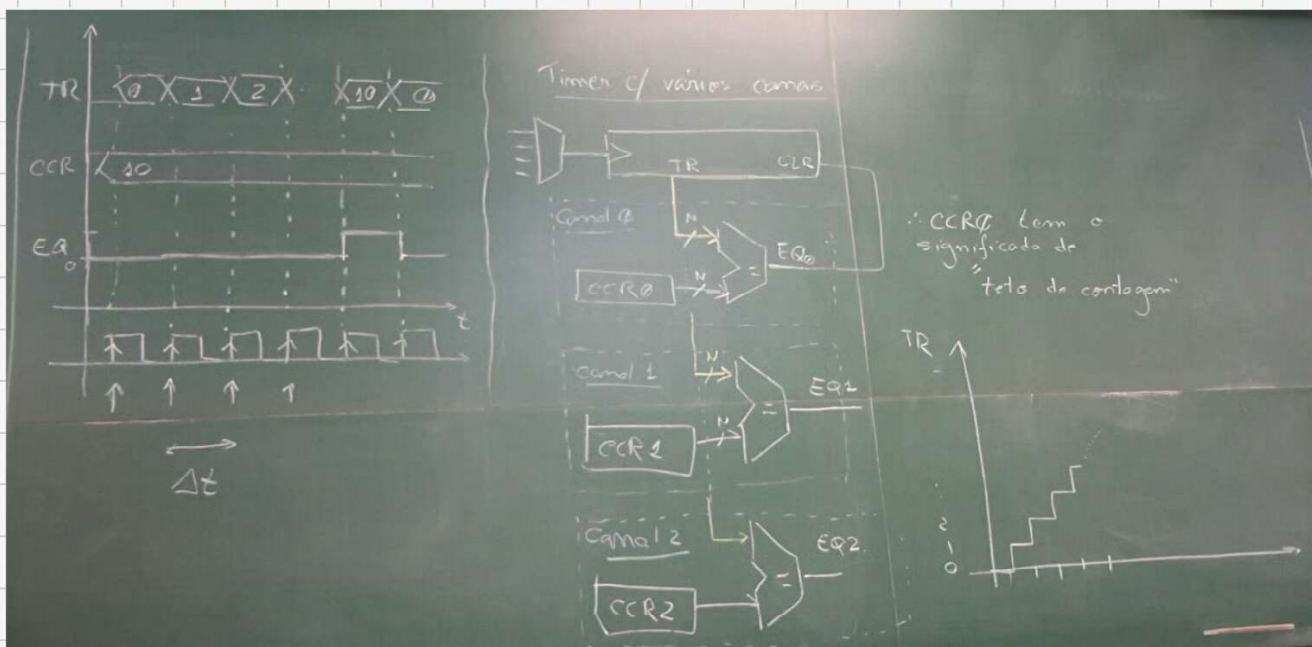 TR 0 1 2 10 0
CCR 10
EQ0
t
Δt
Timer c/ vários canais
TR CLR
Canal 0
N
EQ0
CCR0
N
Canal 1
N
EQ1
CCR1
N
Canal 2
EQ2
CCR2
∴ CCR0 tem o
significado de
"teto de contagem"
TR
2
1
0